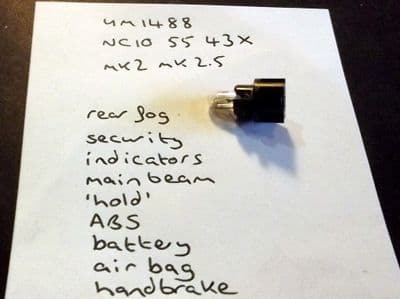 UM1488
NC10 55 43X
MK2 MK2.5
rear fog
security
indicators
main beam
'hold'
ABS
battery
air bag
handbrake